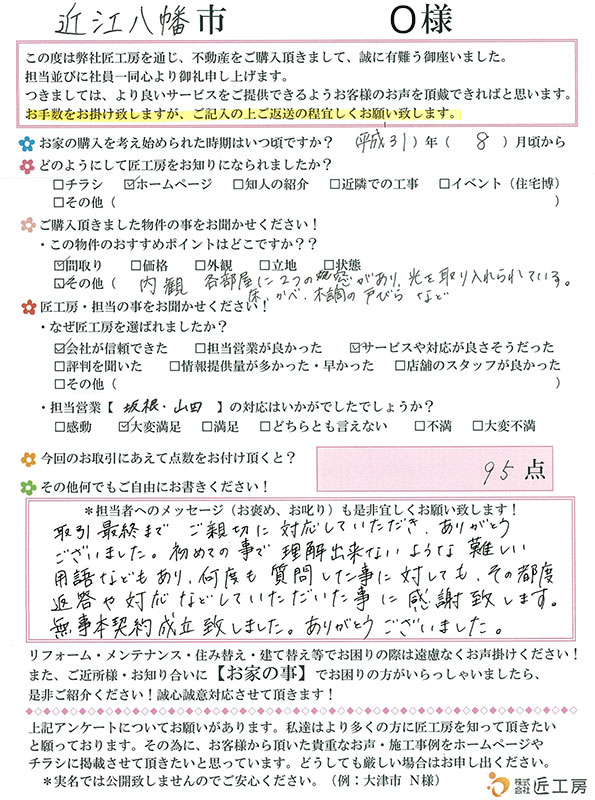 近江八幡市 O様
この度は弊社匠工房を通じ、不動産をご購入頂きまして、誠に有難う御座いました。
担当並びに社員一同心より御礼申し上げます。
つきましては、より良いサービスをご提供できるようお客様のお声を頂戴できればと思います。
お手数をお掛け致しますが、ご記入の上ご返送の程宜しくお願い致します。
お家の購入を考え始められた時期はいつ頃ですか？ (平成31) 年 ( 8 ) 月頃から
どのようにして匠工房をお知りになられましたか？
□チラシ ☑ホームページ □知人の紹介 □近隣での工事 □イベント（住宅博）
□その他（ ）
ご購入頂きました物件の事をお聞かせください！
・この物件のおすすめポイントはどこですか？？
☑間取り □価格 □外観 □立地 □状態
☑その他（ 内観 各部屋に2つの窓があり、光を取り入れられている。
床、かべ、木調の戸びら など
匠工房・担当の事をお聞かせください！
・なぜ匠工房を選ばれましたか？
☑会社が信頼できた □担当営業が良かった ☑サービスや対応が良さそうだった
□評判を聞いた □情報提供量が多かった・早かった □店舗のスタッフが良かった
□その他（ ）
・担当営業【 坂根・山田 】の対応はいかがでしたでしょうか？
□感動 ☑大変満足 □満足 □どちらとも言えない □不満 □大変不満
今回のお取引にあえて点数をお付け頂くと？ 95 点
その他何でもご自由にお書きください！
＊担当者へのメッセージ（お褒め、お叱り）も是非宜しくお願い致します！
取引最終まで ご親切に対応していただき、ありがとう
ございました。初めての事で理解出来ないような難しい
用語などもあり、何度も質問した事に対しても、その都度
返答や対応などしていただいた事に感謝致します。
無事本契約成立致しました。ありがとうございました。
リフォーム・メンテナンス・住み替え・建て替え等でお困りの際は遠慮なくお声掛けください！
また、ご近所様・お知り合いに【お家の事】でお困りの方がいらっしゃいましたら、
是非ご紹介ください！誠心誠意対応させて頂きます！
上記アンケートについてお願いがあります。私達はより多くの方に匠工房を知って頂きたい
と願っております。その為に、お客様から頂いた貴重なお声・施工事例をホームページや
チラシに掲載させて頂きたいと思っています。どうしても厳しい場合はお申し出ください。
＊実名では公開致しませんのでご安心ください。（例：大津市 N様）
株式会社 匠工房